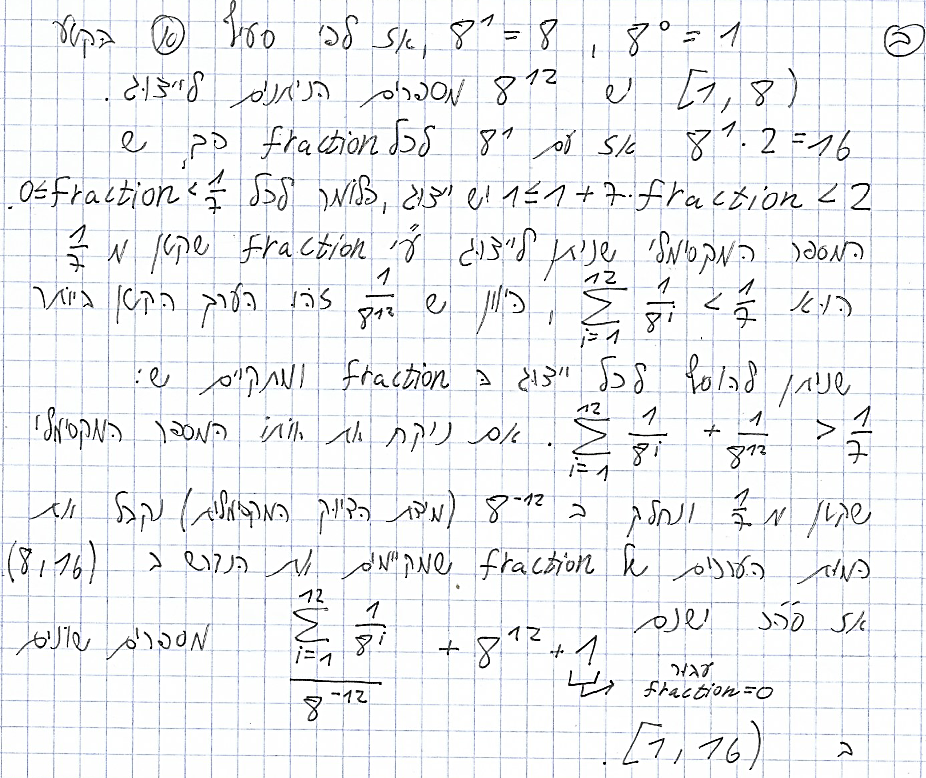 ב) 8^0 = 1 , 8^1 = 8, אז לפי סעיף א) בקטע
[1, 8) יש 8^12 מספרים הניתנים לייצוג.
8^1 · 2 = 16 אז עם 8^1 לכל fraction כך ש
1 ≤ 1 + 7·fraction < 2 יש ייצוג, כלומר לכל 0 ≤ fraction < 1/7.
המספר המקסימלי שניתן לייצוג ע"י fraction שקטן מ 1/7
הוא ∑_{i=1}^{12} 1/8^i < 1/7, כיוון ש 1/8^12 זהו הערך הקטן ביותר
שניתן להוסיף לכל ייצוג ב fraction ומתקיים ש:
∑_{i=1}^{12} 1/8^i + 1/8^12 > 1/7. אם ניקח את אותו המספר המקסימלי
שקטן מ 1/7 ונחלק ב 8^-12 (מידת הדיוק המקסימלית) נקבל את
כמות הערכים של fraction שמקיימים את הנדרש ב (8,16)
אז סה"כ ישנם (∑_{i=1}^{12} 1/8^i)/8^-12 + 8^12 + 1 מספרים שונים
עבור
fraction=0
ב [1, 16).